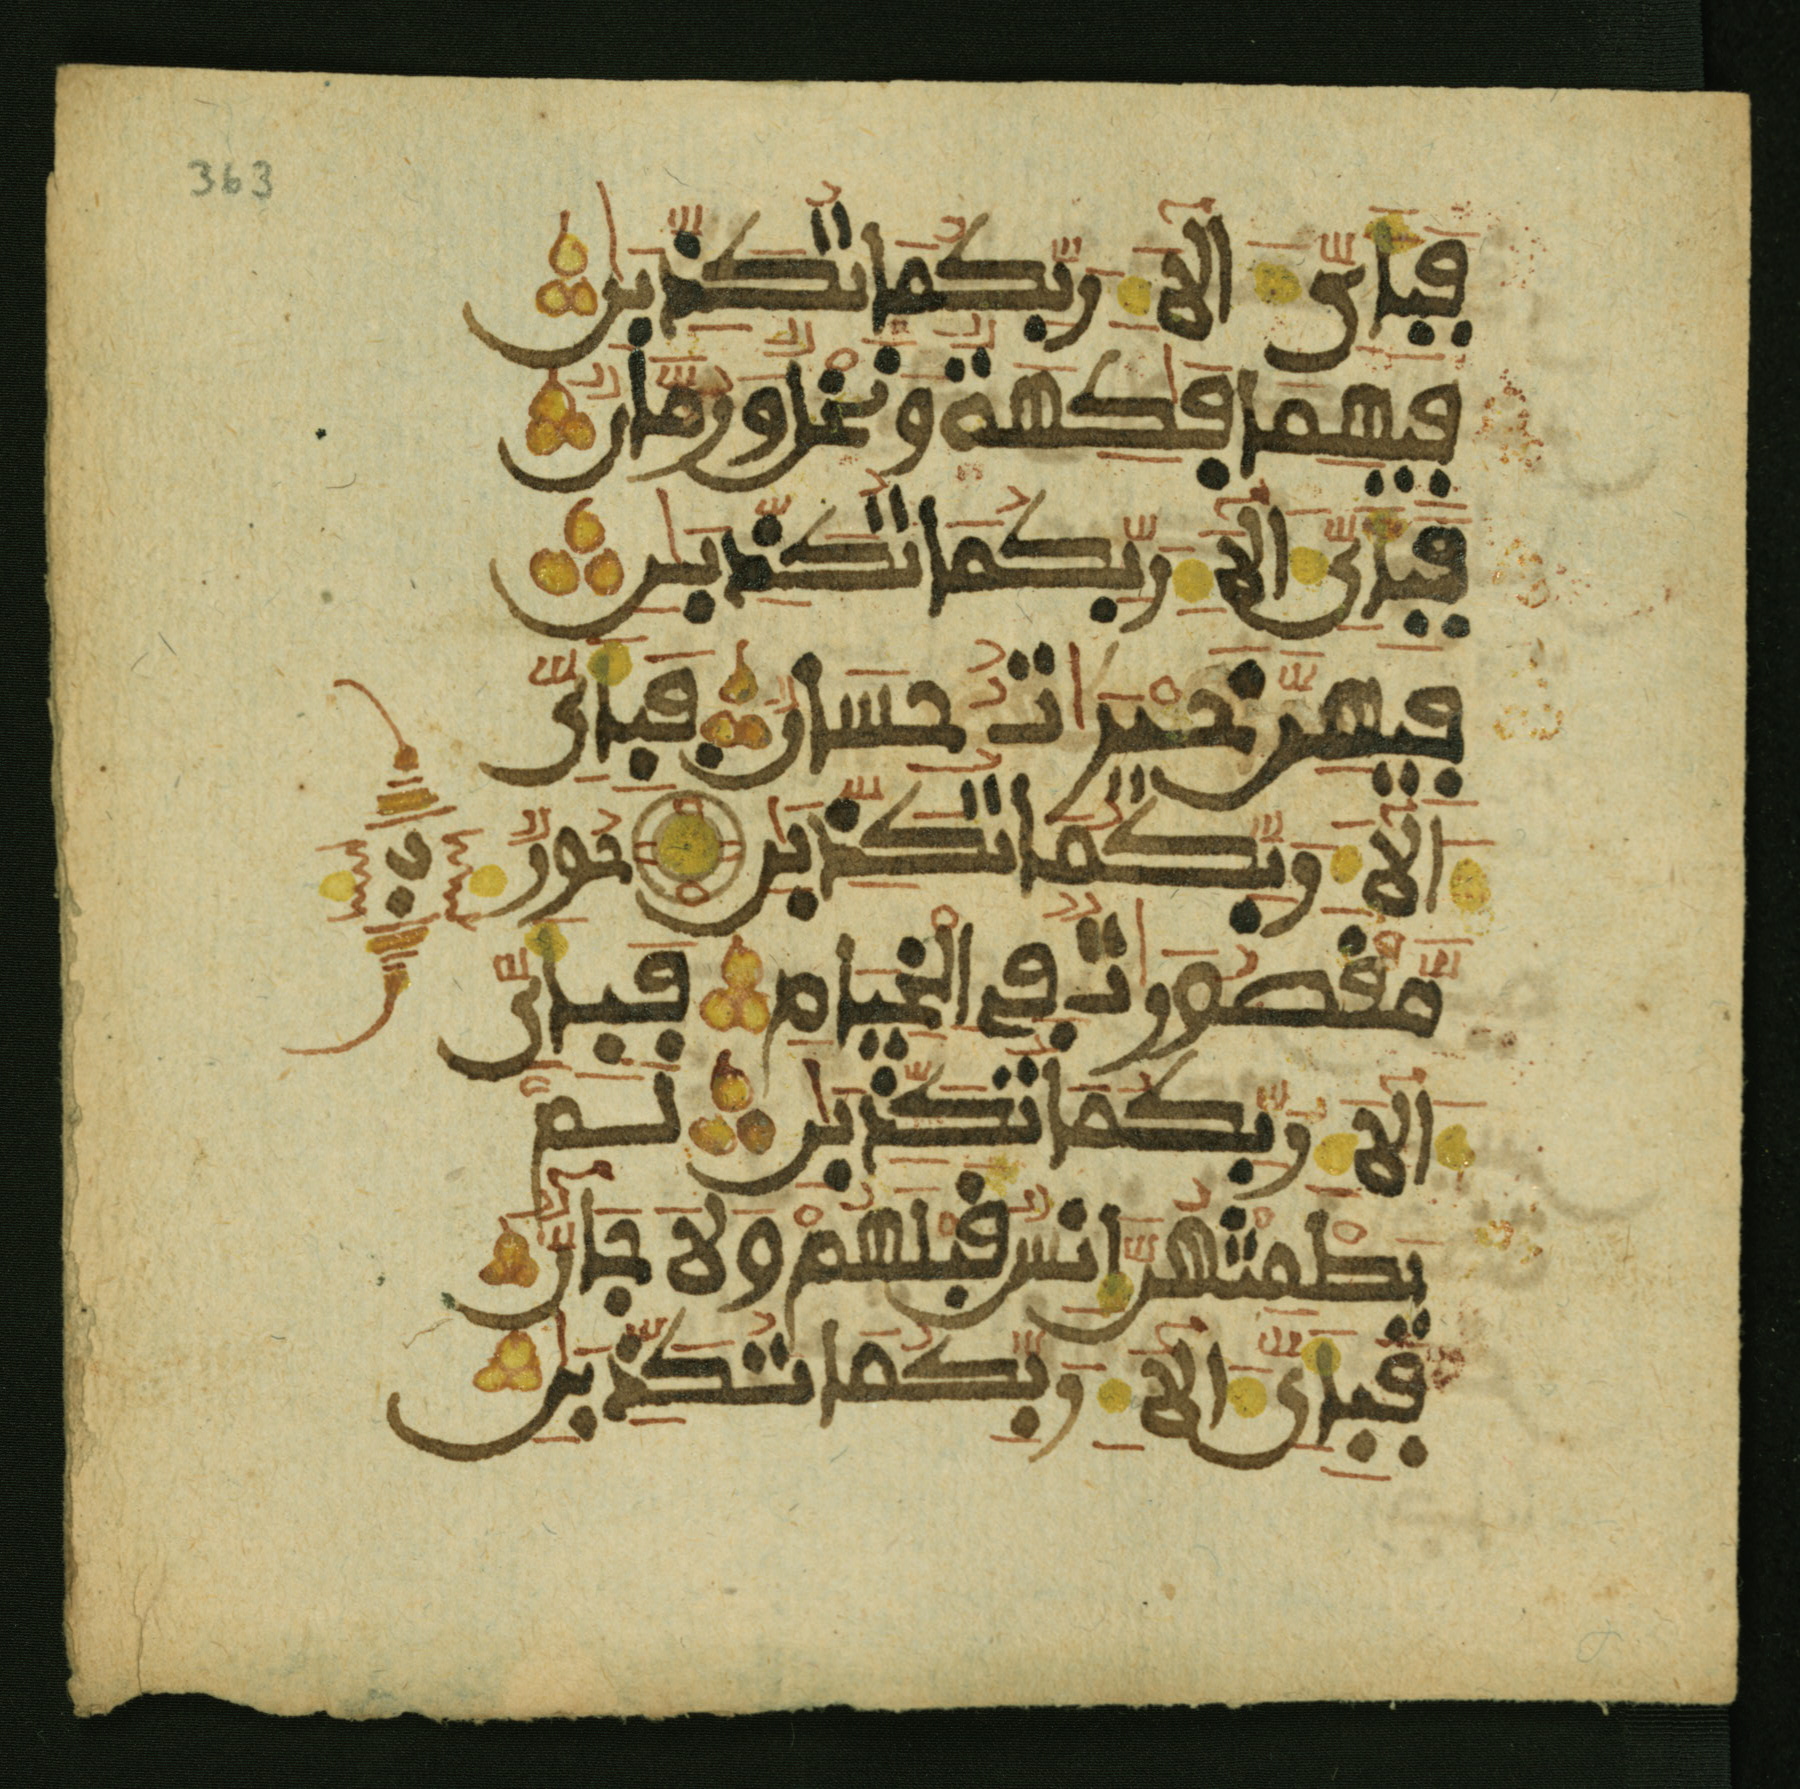 363
فبأي الاء ربكما تكذبٰن
فيهما فٰكهة ونخل ورمان
فبأي الاء ربكما تكذبٰن
فيهن خيرٰت حسان فبأي
الاء ربكما تكذبٰن حور
مقصورٰت في الخيام فبأي
الاء ربكما تكذبٰن لم
يطمثهن انس قبلهم ولا جان
فبأي الاء ربكما تكذبٰن